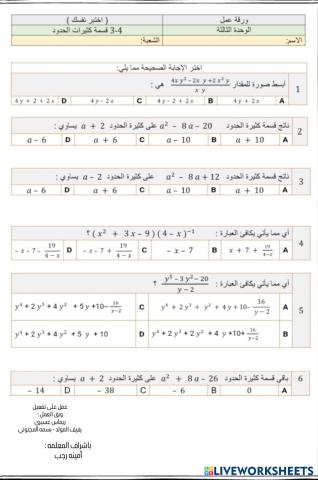 ورقة عمل ( اختبر نفسك )
الوحدة الثالثة 3-4 قسمة كثيرات الحدود
الاسم: الشعبة:
اختر الإجابة الصحيحة مما يلي:
1 أبسط صورة للمقدار (4x y² - 2x y + 2x² y) / (x y) هي :
A 4y + 2x B 4y - 2 + 2x C 4y - 2x D 4y + 2 + 2x
2 ناتج قسمة كثيرة الحدود a² - 8a - 20 على كثيرة الحدود a + 2 يساوي :
A a + 10 B a - 10 C a + 6 D a - 6
3 ناتج قسمة كثيرة الحدود a² - 8a + 12 على كثيرة الحدود a - 2 يساوي :
A a + 10 B a - 10 C a + 6 D a - 6
4 أي مما يأتي يكافئ العبارة : (x² + 3x - 9)(4 - x)⁻¹ ؟
A x + 7 + 19/(4-x) B - x - 7 C - x - 7 + 19/(4-x) D - x - 7 - 19/(4-x)
5 أي مما يأتي يكافئ العبارة : (y⁵ - 3y² - 20) / (y - 2) ؟
A y⁴ + 2y³ + y² + 4y + 10 - 16/(y-2) C y⁴ + 2y³ + 4y² + 5y + 10 - 16/(y-2)
B y⁴ + 2y³ + 2y² + 4y + 10 + 16/(y-2) D y⁴ + 2y³ + 4y² + 5y + 10
6 باقي قسمة كثيرة الحدود a² + 8a - 26 على كثيرة الحدود a + 2 يساوي :
A 0 B - 6 C - 38 D - 14
عمل على تفعيل
ورق العمل :
ريماس عسيري
باشراف المعلمه :
أمينه رجب
LIVEWORKSHEETS